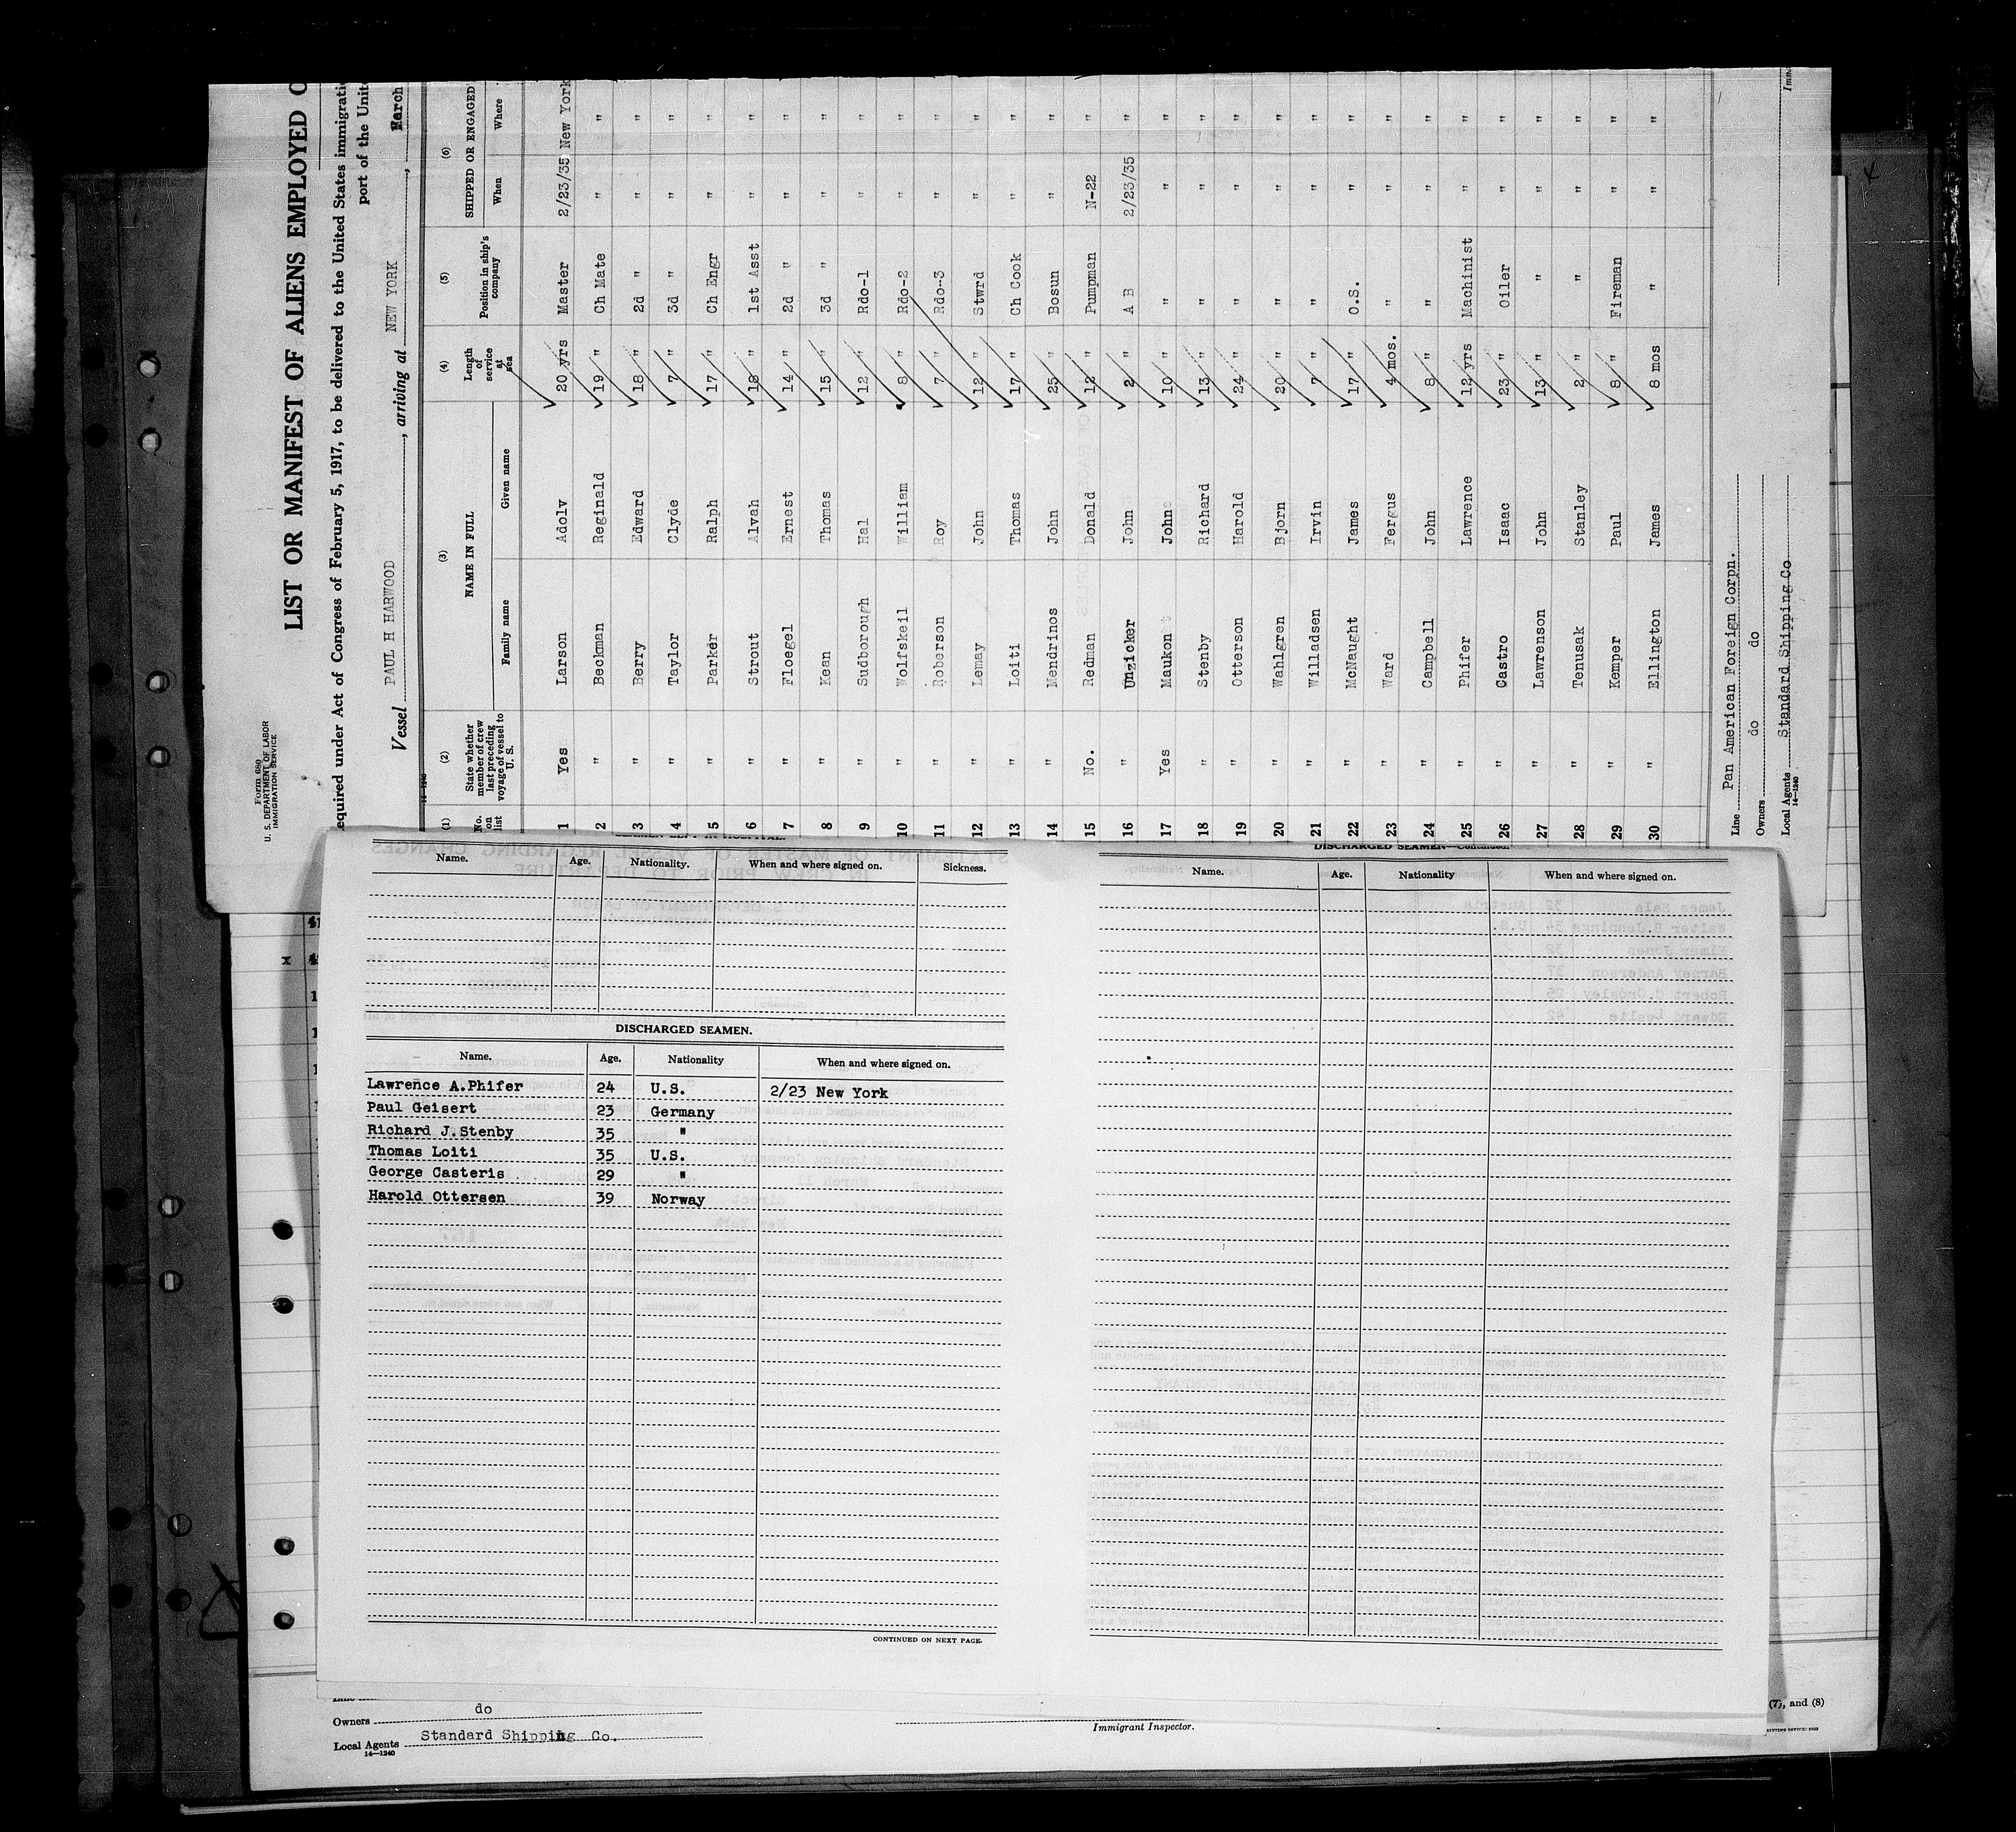 Form 680
U. S. DEPARTMENT OF LABOR
IMMIGRATION SERVICE
LIST OR MANIFEST OF ALIENS EMPLOYED
equired under Act of Congress of February 5, 1917, to be delivered to the United States immigrati
port of the Unit
Vessel PAUL H HARWOOD, arriving at NEW YORK, March
(1) (2) (3) (4) (5) (6)
No. on list State whether member of crew last preceding voyage of vessel to U. S. NAME IN FULL Length of service at sea Position in ship's company SHIPPED OR ENGAGED
Family name Given name When Where
1 Yes Larson Adolv 20 yrs Master 2/23/35 New York
2 " Beckman Reginald 19 " Ch Mate " "
3 " Berry Edward 18 " 2d " " "
4 " Taylor Clyde 7 " 3d " " "
5 " Parker Ralph 17 " Ch Engr " "
6 " Strout Alvah 18 " 1st Asst " "
7 " Floegel Ernest 14 " 2d " " "
8 " Kean Thomas 15 " 3d " " "
9 " Sudborough Hal 12 " Rdo-1 " "
10 " Wolfskeil William 8 " Rdo-2 " "
11 " Roberson Roy 7 " Rdo-3 " "
12 " Lemay John 12 " Stwrd " "
13 " Loiti Thomas 17 " Ch Cook " "
14 " Mendrinos John 25 " Bosun " "
15 No. Redman Donald 12 " Pumpman N-22 "
16 " Unzicker John 2 " A B 2/23/35 "
17 Yes Maukon John 10 " " " "
18 " Stenby Richard 13 " " " "
19 " Otterson Harold 24 " " " "
20 " Wahlgren Bjorn 20 " " " "
21 " Willadsen Irvin 7 " " " "
22 " McNaught James 17 " O.S. " "
23 " Ward Fergus 4 mos. " " "
24 " Campbell John 8 " " " "
25 " Phifer Lawrence 12 yrs Machinist " "
26 " Castro Isaac 23 " Oiler " "
27 " Lawrenson John 13 " " " "
28 " Tenusak Stanley 2 " " " "
29 " Kemper Paul 8 " Fireman " "
30 " Ellington James 8 mos " " "
Line Pan American Foreign Corpn.
Owners do do
Local Agents Standard Shipping Co
14—1240
Name. Age. Nationality. When and where signed on. Sickness.
DISCHARGED SEAMEN.
Name. Age. Nationality When and where signed on.
Lawrence A.Phifer 24 U.S. 2/23 New York
Paul Geisert 23 Germany
Richard J.Stenby 35 "
Thomas Loiti 35 U.S.
George Casteris 29 "
Harold Ottersen 39 Norway
CONTINUED ON NEXT PAGE.
DISCHARGED SEAMEN—Continued.
Name. Age. Nationality When and where signed on.
Owners do
Local Agents Standard Shipping Co.
14—1240
Immigrant Inspector.
(7), and (8)